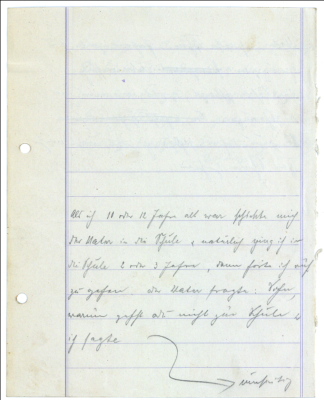 Als ich 10 oder 12 Jahre alt war schickte mich
der Vater in die Schule & natürlich ging ich in
die Schule 2 oder 3 Jahre, dann hörte ich auf
zu gehen der Vater fragte: Sohn,
warum gehst du nicht zur Schule &
ich sagte